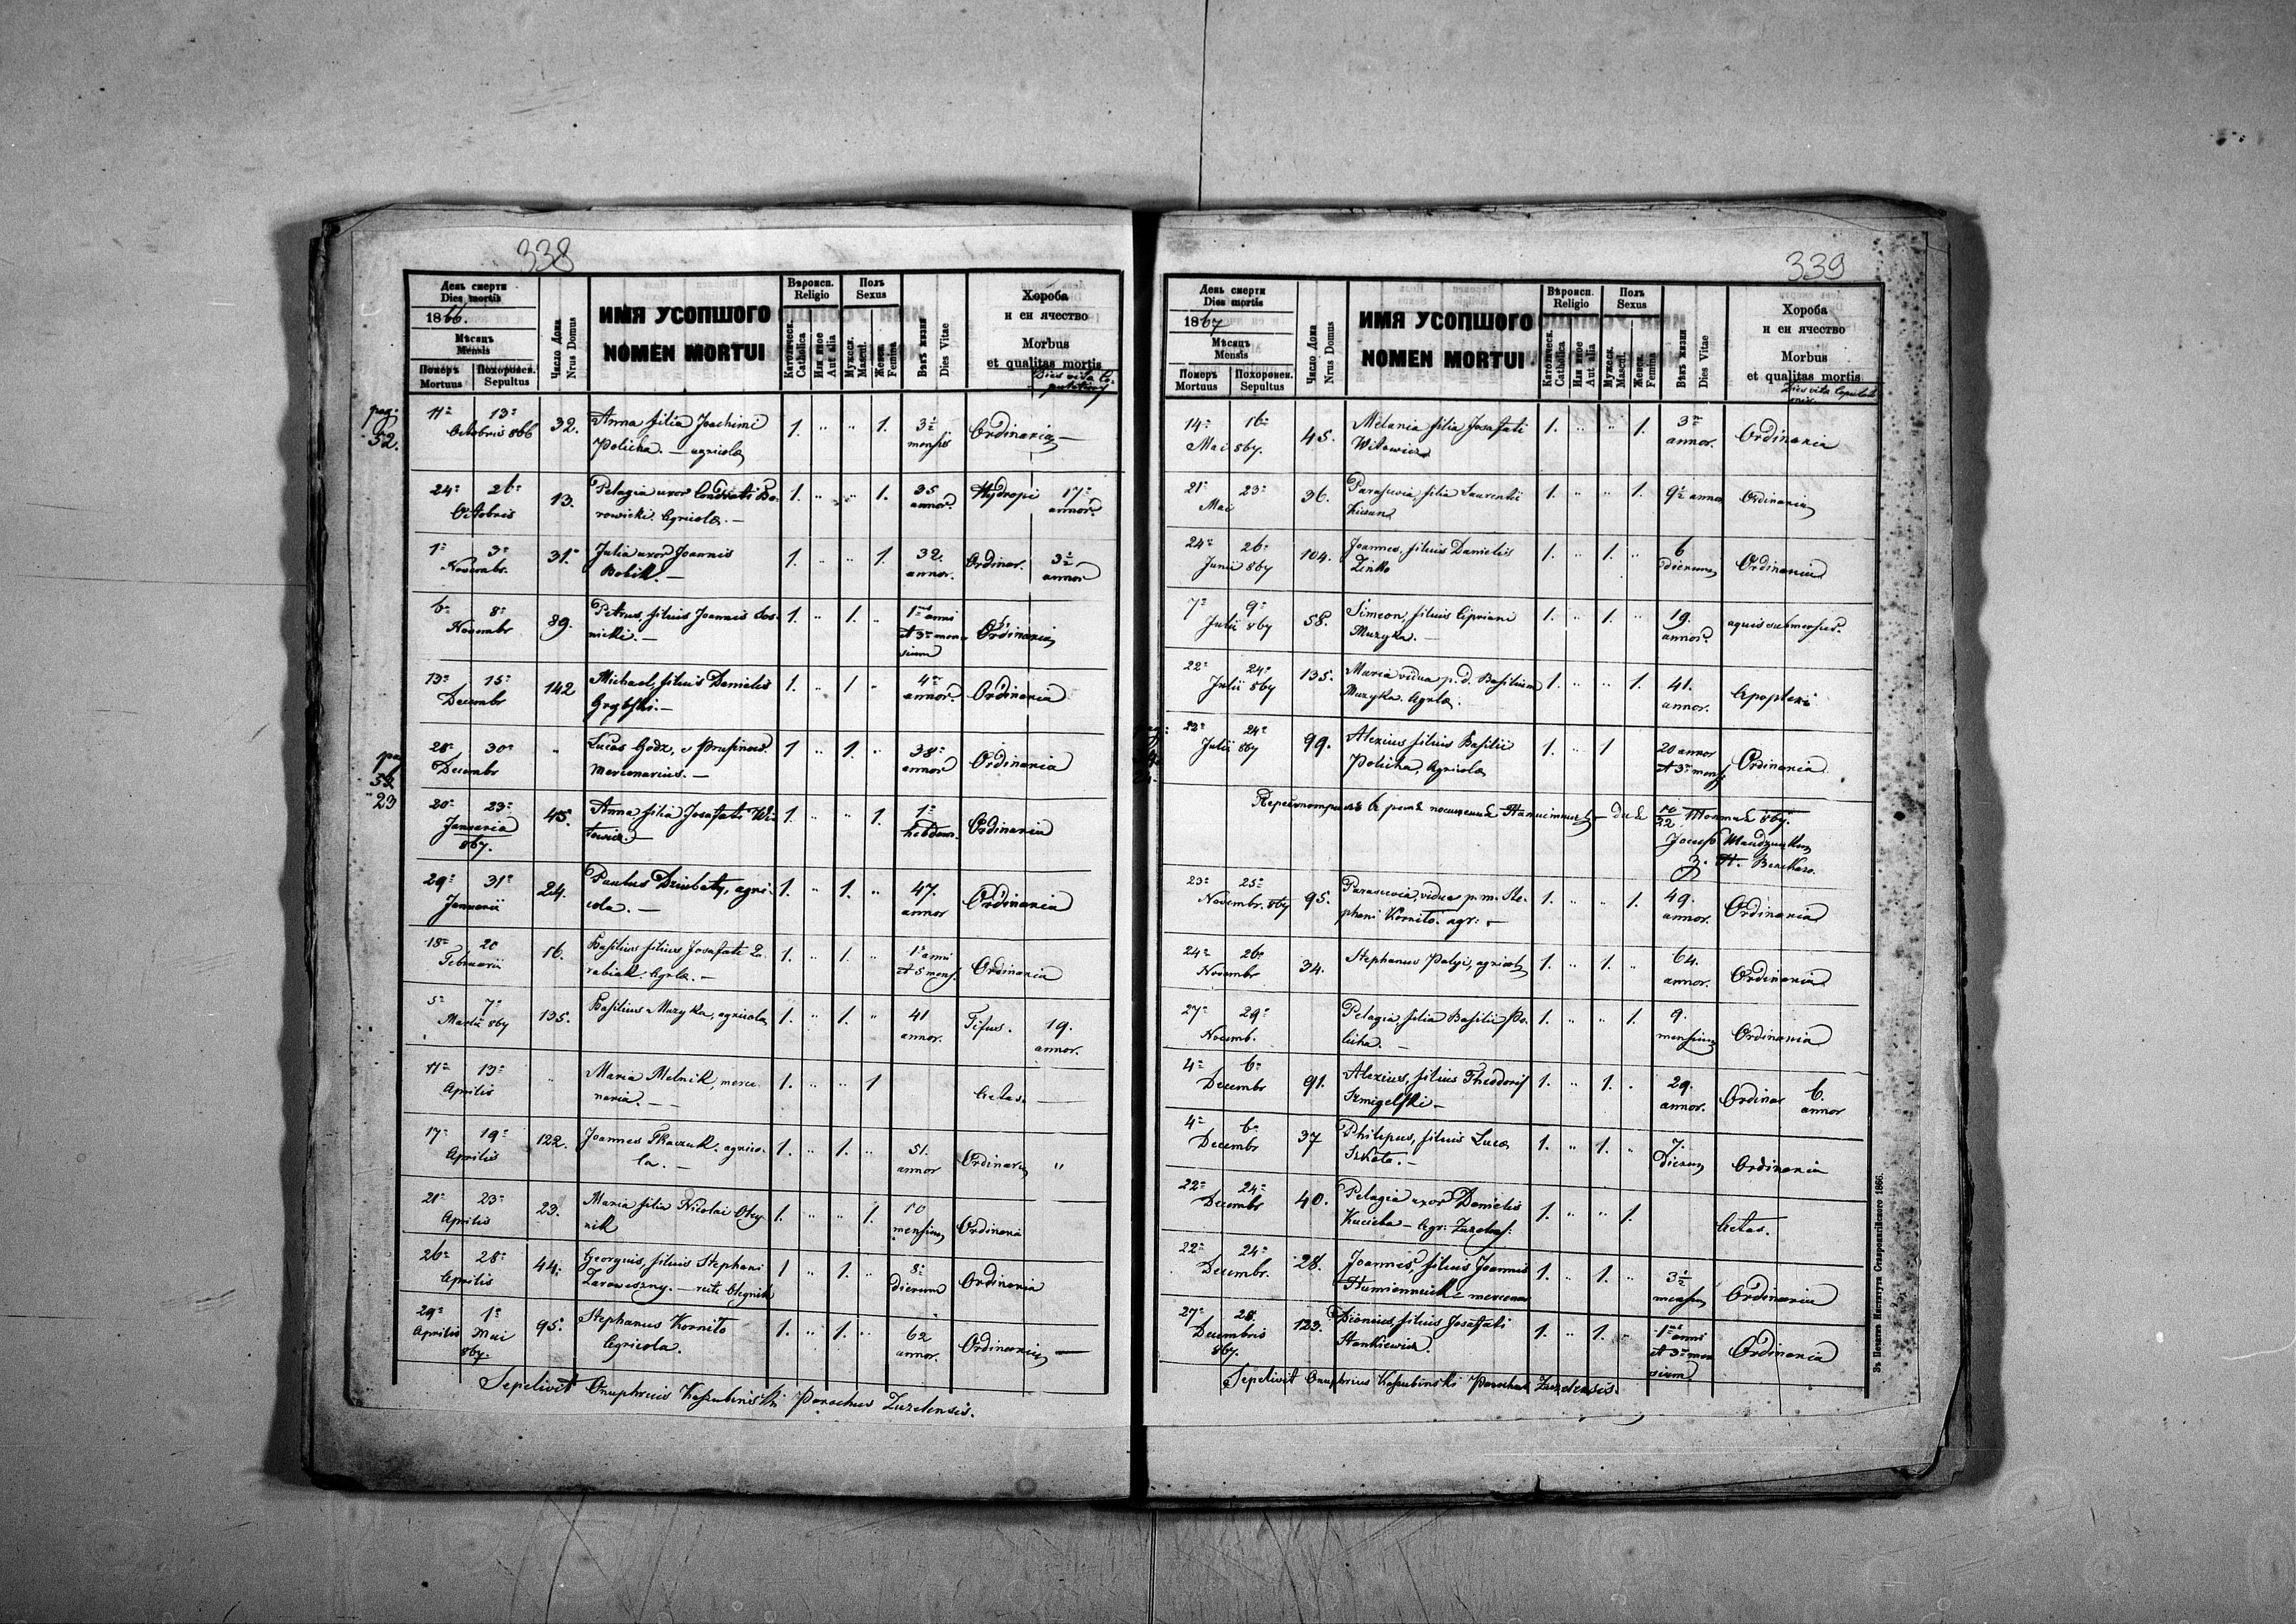 338
День смерти
Dies mortis
1866.
Мѣсяць
Mensis
Померъ
Mortuus
Похоронен.
Sepultus
Число Дома
Nrus Domus
ИМЯ УСОПШОГО
NOMEN MORTUI
Вѣроисп.
Religio
Католическ.
Catholica
Или иное
Aut alia
Полъ
Sexus
Мужеск.
Mascul.
Женск.
Femina
Вѣкъ жизни
Dies Vitae
Хороба
и еи ячество
Morbus
et qualitas mortis
pag:
52.
11 13 32. Anna filia Joachimi 1. " " 1. 3½ Ordinaria —
Octobris 866 Policha. — agricola mensis
24 26 13. Pelagia uxor Condrati Bo- 1. " " 1. 35 Hydropi 17
Octobris rowicki. Agricola. — annor. annor.
1 3 31. Julia uxor Joannis 1. " " 1. 32. Ordinar. 3½
Novembr. Bobik. — annor. annor
6 8 89. Petrus, filius Joannis Sos- 1. " 1. " 1 anni Ordinaria
Novembr nicki. — et 3 men-
sium
13 15 142 Michael, filius Danielis 1. " 1 " 4 Ordinaria
Decembr Grybski. — annor.
28 30 " Lucas Godz, e Prusinow. 1 " 1. " 38 Ordinaria
Decembr Mercenarius. — annor
52
23
20 23 45. Anna filia Josafati Wi- 1. " " 1. 1 Ordinaria
Januaria towicz — hebdom.
867.
29 31 24. Paulus Dziubaty, agri- 1. " 1. " 47. Ordinaria
Januarii cola. — annor
18 20 16. Basilius filius Josafati 1. " 1. " 1 anni Ordinaria
Februarii rabiak. Agrla. — et 5 mens.
5 7 135. Basilius Muzyka, agricola 1. " 1. " 41 Tifus. 19.
Martii 867 annor. annor.
11 13 " Maria Melnik, merce- 1. " " 1 Aetas. —
Aprilis naria. —
17 19 122. Joannes Tkaczuk. agrico- 1. " 1. " 51. Ordinaria "
Aprilis la. — annor
21 23 29. Maria filia Nicolai Oley- 1. " " 1. 10 Ordinaria
Aprilis nik mensium
26 28 44. Georgius, filius Stephani 1 " 1. " 8 Ordinaria
Aprilis Zaroweszny. — recte Olejnik dierum
29 1 95. Stephanus Kornito 1. " 1. " 62 Ordinaria —
Aprilis Mai Agricola. annor.
867.
Sepelivit Onuphrius Kaszubinski Parochus Zuzelensis.
339
День смерти
Dies mortis
1867
Мѣсяць
Mensis
Померъ
Mortuus
Похоронен.
Sepultus
Число Дома
Nrus Domus
ИМЯ УСОПШОГО
NOMEN MORTUI
Вѣроисп.
Religio
Католическ.
Catholica
Или иное
Aut alia
Полъ
Sexus
Мужеск.
Mascul.
Женск.
Femina
Вѣкъ жизни
Dies Vitae
Хороба
и еи ячество
Morbus
et qualitas mortis
14 16 45. Melania filia Josafati 1. " " 1. 3 Ordinaria
Mai 867. Witowicz annor.
21 23 36. Parascevia, filia Laurentii 1. " " 1. 9½ annor Ordinaria
Mai
24 26 104. Joannes, filius Danielis 1. " 1. " 6 Ordinaria
Junii 867 Zinko dierum
7 9 58. Simeon, filius Cipriani 1. " 1. " 19. aquis submersus.
Julii 867 Muzyka. — annor.
22 24 135. Maria vidua p. d. Basilium 1. " " 1. 41. Apoplexi
Julii 867 Muzyka. Agrla. annor.
22 24 99. Alexius filius Basilii 1. " 1 20 annor Ordinaria
Julii 867 Policha, Agricola et 3 mens
23 25 95. Parascevia, vidua p. m. Ste- 1. " " 1. 49. Ordinaria
Novembr. 867 phani Kornito. agr: annor.
24 26 34. Stephanus Palyi, agricola 1. " 1. " 64. Ordinaria
Novembr annor.
27 29 Pelagia, filia Basilii Po- 1. " " 1. 9. Ordinaria
Novemb. licha. — mensium
4 6 91. Alexius, filius Theodori 1. " 1. " 29. Ordinar 6.
Decembr Szmigelski — annor. annor
4 6 37 Philipus, filius Luca 1. " 1. " 7. Ordinaria
Decembr Szkata. — Dierum
22 24 40. Pelagia uxor Danielis 1. " " 1. Aetas.
Decembr Kucicha — Agr:
22 24 28. Joannes, filius Joannis 1. " 1. " 3½ Ordinaria
Decembr. mensium
27 28 123. Dionisius, filius Josafati 1. " 1. " 1 anni Ordinaria
Decembris Stankiewicz. et 3 men
867. sium
Sepelivit Onuphrius Kaszubinski Parochus Zuzelensis.
Зъ Печатнѣ Института Ставропигійского 1866.